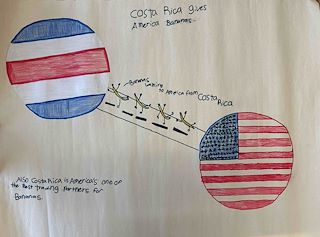 Costa Rica gives
America Bananas-
-Bananas walking to America from Costa
Rica
Also Costa Rica is America's one of
the Best trading Partners for
Bananas.